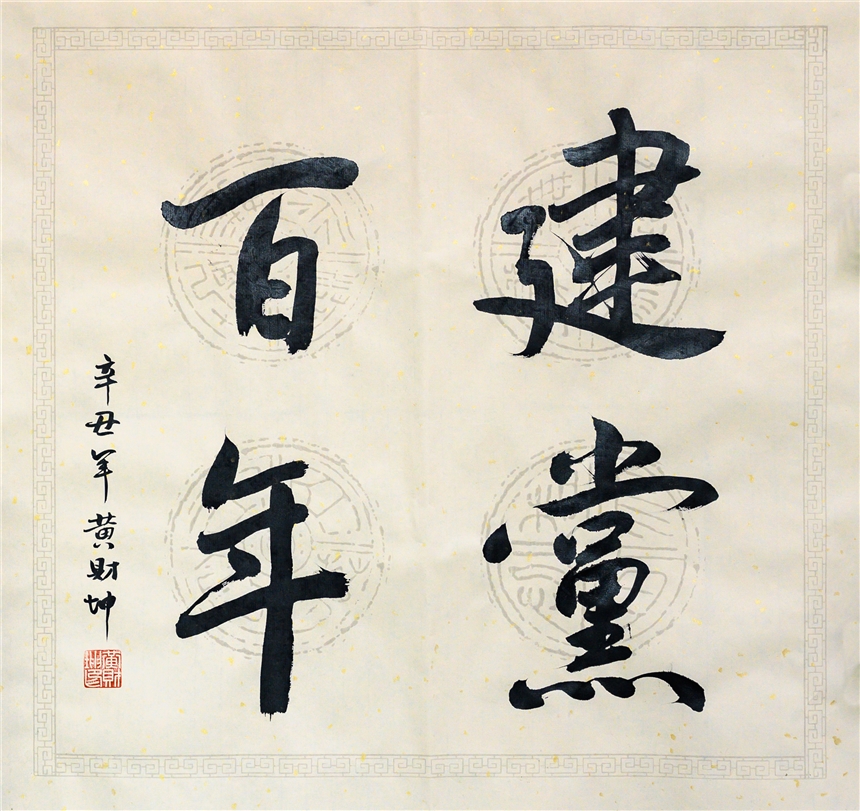 建黨
百年
辛丑年黄財坤